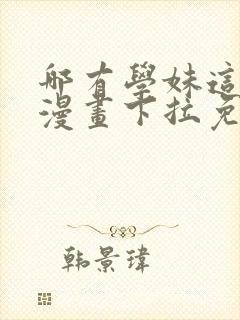 那有學妹這
漫畫下拉免
韩景瑋